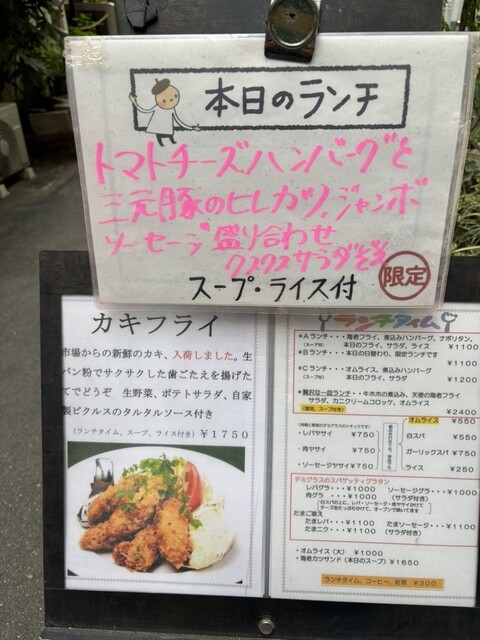 本日のランチ
トマトチーズハンバーグと
三元豚のヒレカツ、ジャンボ
ソーセージ 盛り合わせ
クスクスサラダ
限定
スープ・ライス付
カキフライ
市場からの新鮮のカキ、入荷しました。生
パン粉でサクサクした歯ごたえを揚げた
てでどうぞ 生野菜、ポテトサラダ、自家
製ピクルスのタルタルソース付き
(ランチタイム、スープ、ライス付き) ¥1750
ランチタイム
*Aランチ・・・海老フライ、煮込みハンバーグ、ナポリタン、
(スープ付) 本日のフライ、サラダ、ライス ¥1100
*Bランチ・・・本日の日替わり、限定ランチです
¥1100
*Cランチ・・・オムライス、煮込ハンバーグ
(スープ付) 本日のフライ、サラダ ¥1200
*贅沢な一皿ランチ・・牛ホホの煮込み、天使の海老フライ
サラダ、カニクリームコロッケ、オムライス
¥2400
・レバヤサイ ¥750
・肉ヤサイ ¥750
・ソーセージヤサイ ¥750
オムライス ¥550
白スパ ¥550
ガーリックスパ ¥550
ライス ¥250
デミグラスのスパゲッティグラタン
レバグラ・・・¥1000 ソーセージグラ・・・¥1000
肉グラ ・・・¥1000 (サラダ付き)
たまご添え
たまレバ・・・¥1100 たまソーセージ・・・¥1100
たまニク・・・¥1100 (サラダ付き)
・オムライス(大) ¥1000
・海老カツサンド(本日のスープ) ¥1650
ランチタイム、コーヒー、紅茶 ¥300